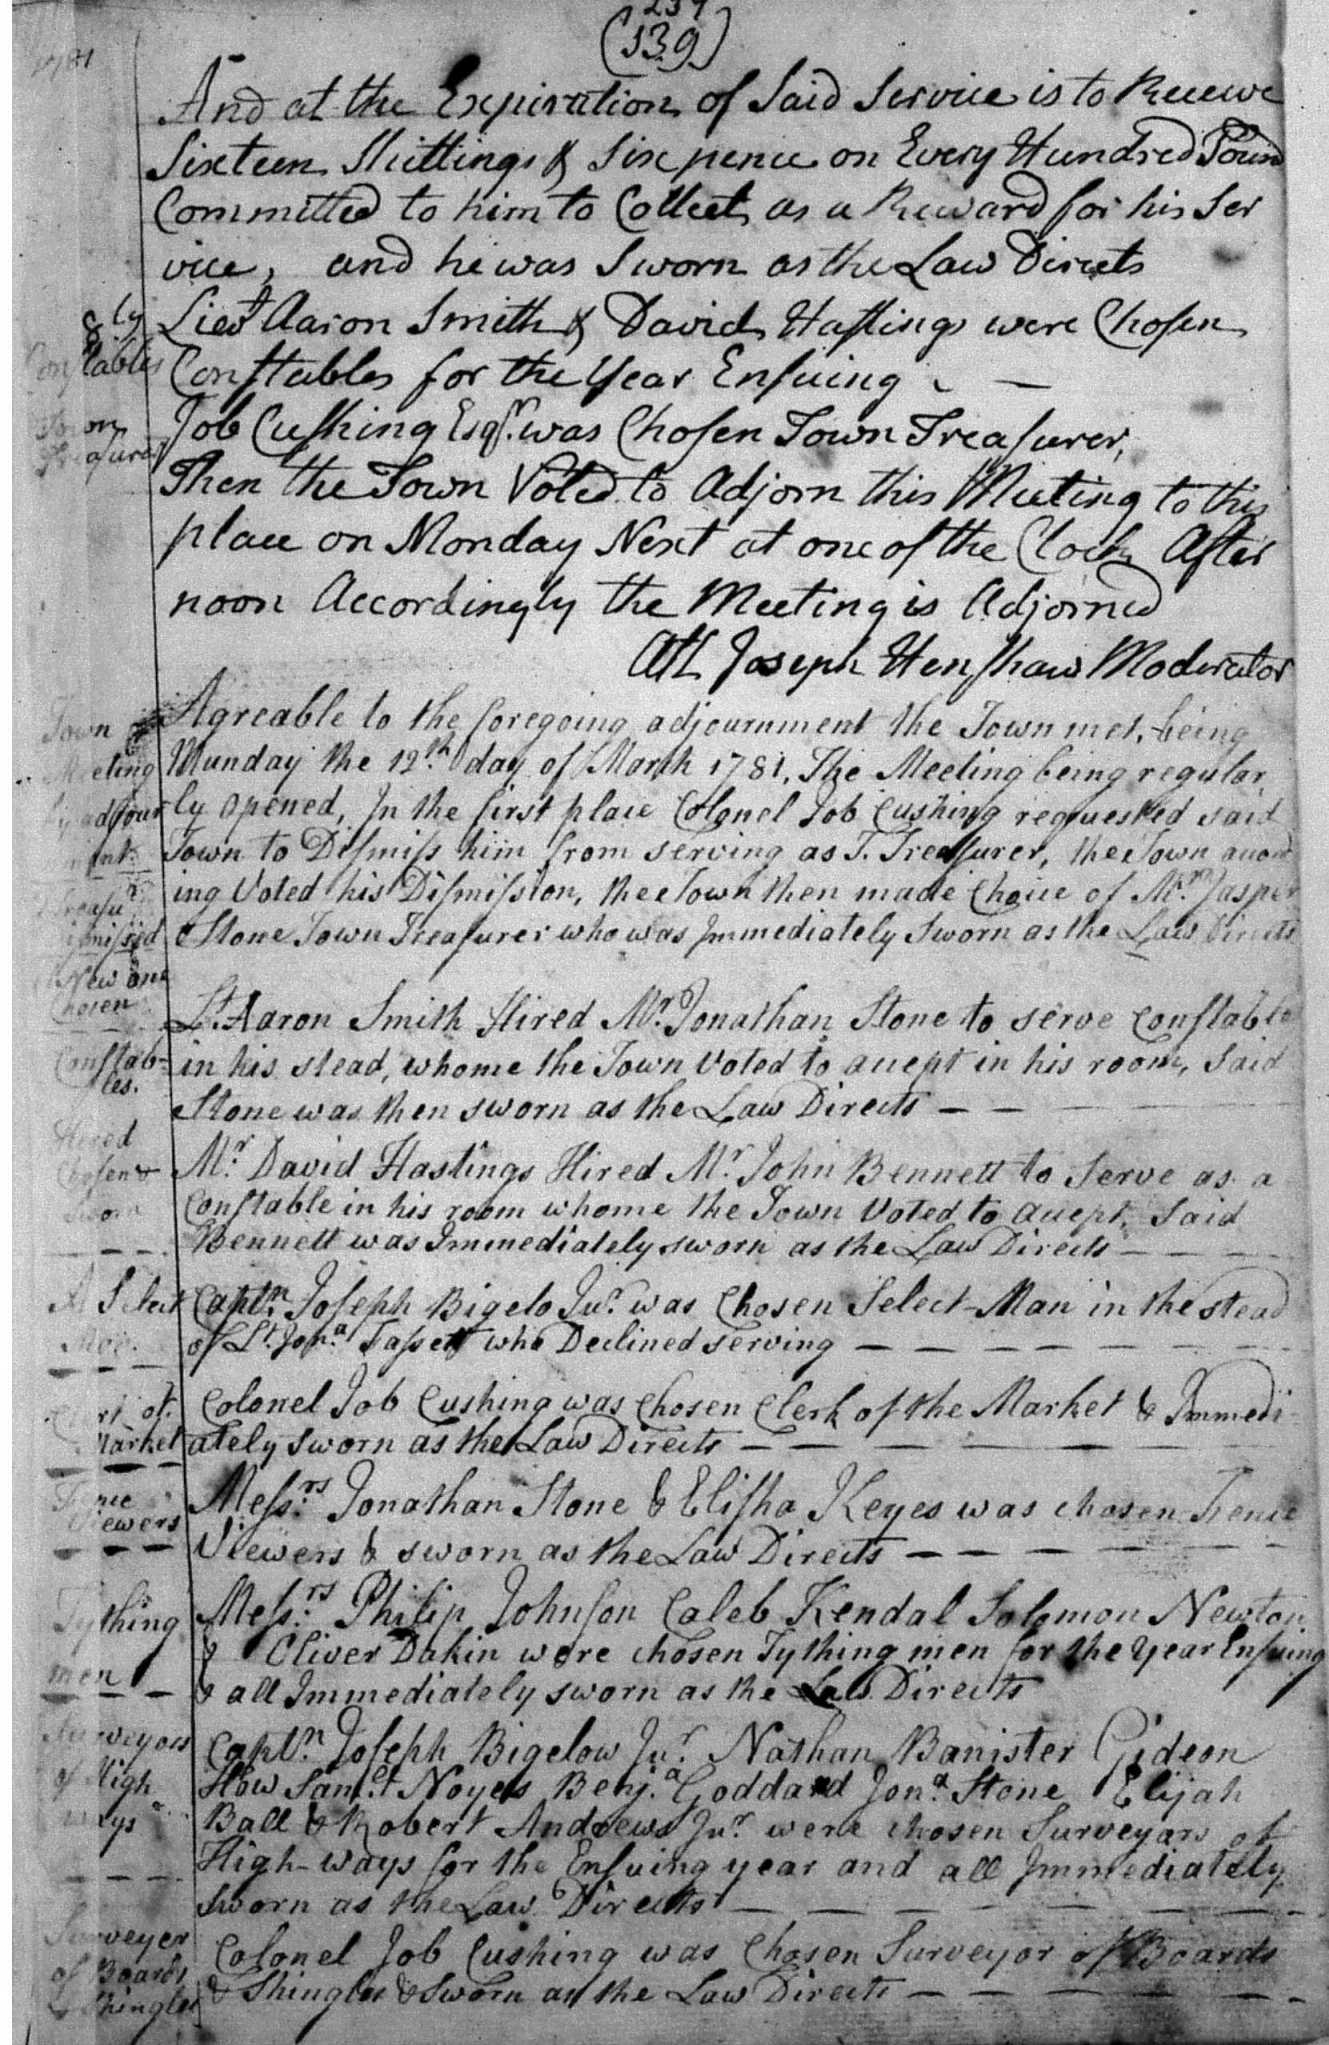 1781
239
(139)
And at the Expiration of Said Service is to Receive
Sixteen Shillings & Six pence on Every Hundred Pound
Committed to him to Collect as a Reward for his Ser
vice, and he was Sworn as the Law Directs
Lieut Aaron Smith & David Hastings were Chosen
Constables
Constables for the Year Ensuing
Town
Treasurer
Job Cushing Esqr. was Chosen Town Treasurer,
Then the Town Voted to Adjorn this Meeting to this
place on Monday Next at one of the Clock After
noon Accordingly the Meeting is Adjorned
Att Joseph Henshaw Moderator
Town
Meeting
by adjour
nment
Agreable to the foregoing adjournment the Town met, being
Munday the 12th. day of March 1781, The Meeting being regular
ly opened, In the first place Colonel Job Cushing requested said
Town to Dismiss him from serving as T. Treasurer, the Town accord
ing Voted his Dismission, the Town then made Choice of Mr. Jasper
Stone Town Treasurer who was Immediately Sworn as the Law Directs
Treasur
Dismissed
New one
Chosen
Lt. Aaron Smith Hired Mr. Jonathan Stone to serve Constable
in his stead, whome the Town Voted to accept in his room, Said
Stone was then sworn as the Law Directs
Constab-
les.
Hired
Chosen &
Sworn
Mr. David Hastings Hired Mr. John Bennett to Serve as a
Constable in his room whome the Town Voted to accept, Said
Bennett was Immediately sworn as the Law Directs
A Select
Man
Captn. Joseph Bigelo Jur. was Chosen Select-Man in the stead
of Lt. Jona. Tassett who Declined serving
Clerk of
Market
Colonel Job Cushing was Chosen Clerk of the Market & Immedi
ately sworn as the Law Directs
Fence
Viewers
Messrs. Jonathan Stone & Elisha Keyes was chosen Fence
Viewers & sworn as the Law Directs
Tything
men
Messrs. Philip Johnson Caleb Kendal Solomon Newton
& Oliver Dakin were chosen Tything men for the Year Ensuing
& all Immediately sworn as the Law Directs
Surveyors
of High
ways
Captn. Joseph Bigelow Jur. Nathan Banister Gideon
How Samel. Noyes Benja. Goddard Jona. Stone Elijah
Ball & Robert Andrews Jur. were chosen Surveyars of
High-ways for the Ensuing year and all Immediately
Sworn as the Law Directs
Surveyer
of Boards
& Shingles
Colonel Job Cushing was Chosen Surveyor of Boards
& Shingles & Sworn as the Law Directs